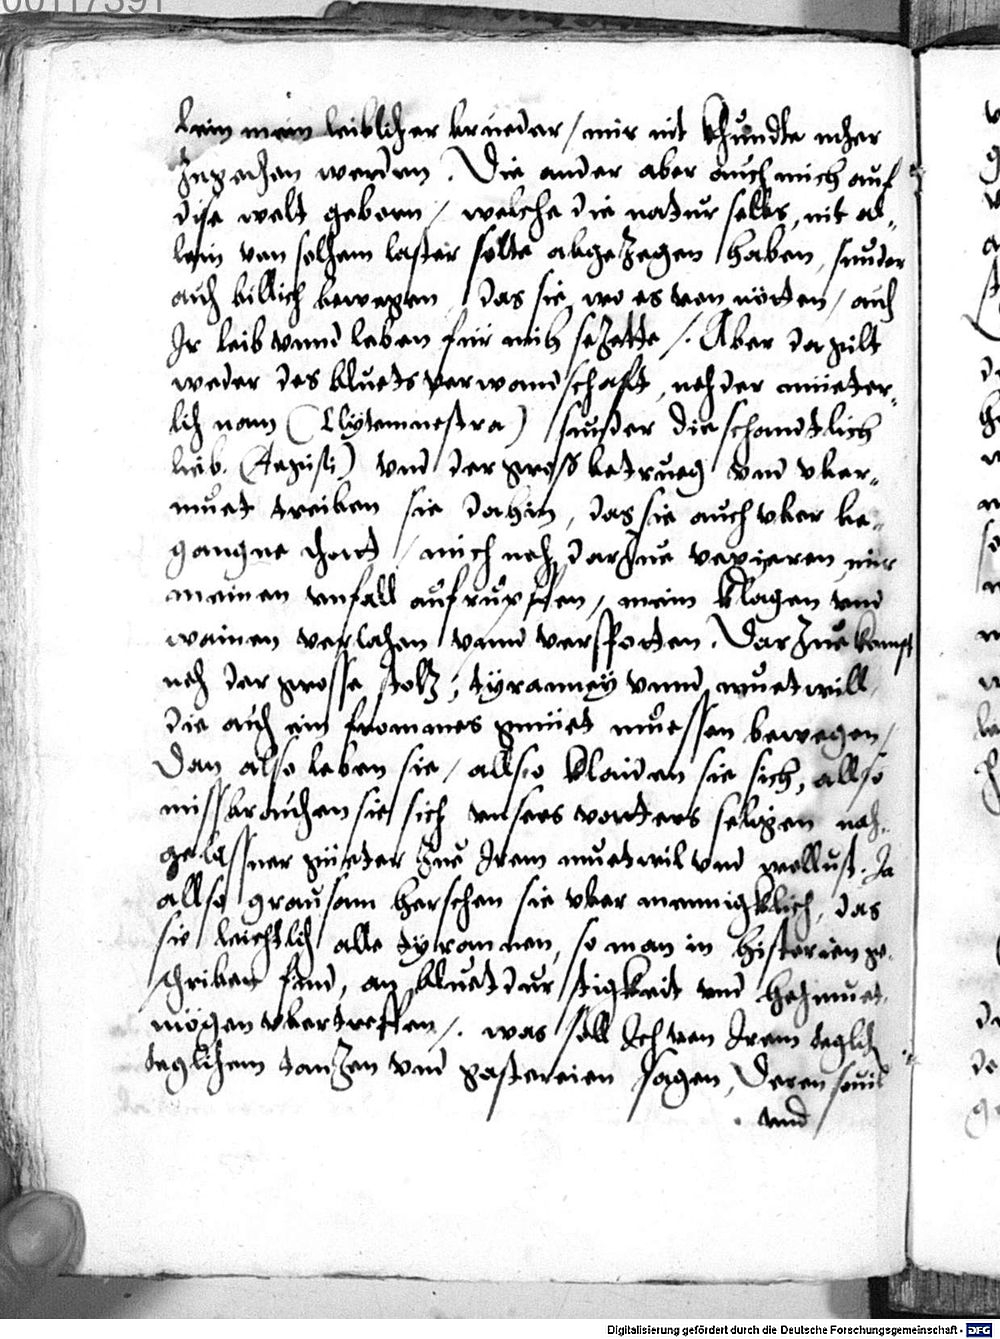 00117391
lein mein leiblicher brueder / mir nit khundte naher
zugechen werden. Die ander aber auch mich auf
dise welt geborn / welche die natur selbs, nit al-
lein von solhem laster solte abgezogen haben, sunder
auch billich bewegen, das sie, wo es von nötten / auch
Ir leib vnnd leben für mich sezette /. Aber da gilt
weder des bluets verwandschafft, noch der müeter-
lich nam (Clytemnestra) sunder die schandtlich
lieb. (Aegisti) vnd der gross betrueg vnd vber-
muet treiben sie dahin, das sie auch vber be-
gangne mich noch darzue vexieren mir
meinen vnfall aufrupffen, mein klagen vnd
wainen verlachen vnnd verspotten. Darzue kompt
noch der grosse stolz, tÿranneÿ vnnd muetwill
die auch ein frommes gmüet müessen bewegen /
Dan also leben sie / allso klaiden sie sich, allso
missbrauchen sie sich vnsers vatters seligen nach-
gelassner güeter zue Irem muetwil vnd wollust. Ja
allso grausam herschen sie vber mennigklich, das
sie leichtlich alle tÿrannen, so man in historien ge-
schriben find, an bluetdurstigkeit vnd hochmuet
mögen vbertreffen /. was soll Ich von Irem teglich
teglichem tanzen vnd gastereien sagen, Deren souil
vnd
Digitalisierung gefördert durch die Deutsche Forschungsgemeinschaft - DFG